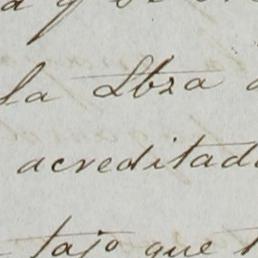 la Lbza
acreditad
tajo que